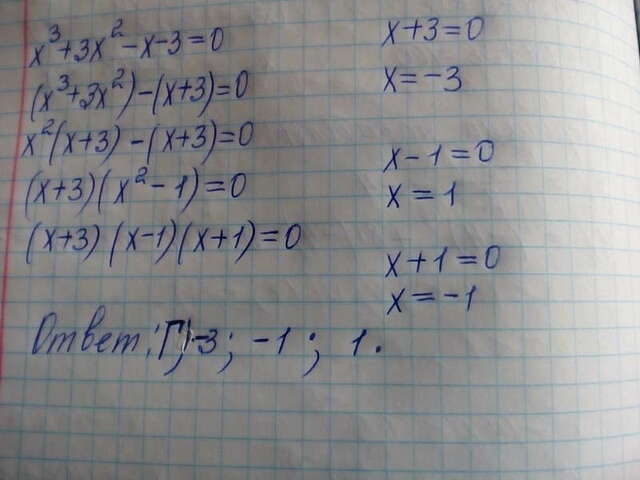 x³+3x²-x-3=0
(x³+3x²)-(x+3)=0
x²(x+3)-(x+3)=0
(x+3)(x²-1)=0
(x+3)(x-1)(x+1)=0
x+3=0
x=-3
x-1=0
x=1
x+1=0
x=-1
Ответ: Г) -3; -1; 1.